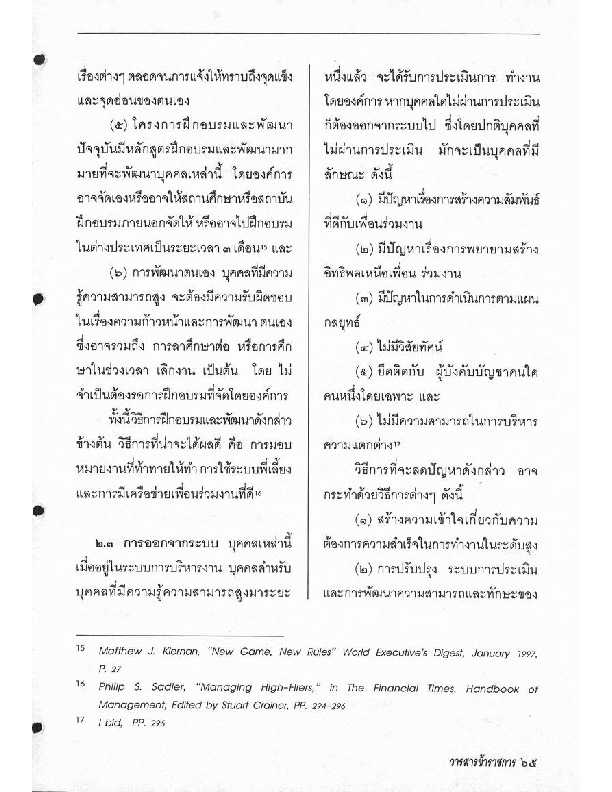 เรื่องต่างๆ ตลอดจนการแจ้งให้ทราบถึงจุดแข็ง
และจุดอ่อนของตนเอง
(๕) โครงการฝึกอบรมและพัฒนา
ปัจจุบันมีหลักสูตรฝึกอบรมและพัฒนามาก
มายที่จะพัฒนาบุคคลเหล่านี้ โดยองค์การ
อาจจัดเองหรืออาจให้สถานศึกษาหรือสถาบัน
ฝึกอบรมภายนอกจัดให้ หรืออาจไปฝึกอบรม
ในต่างประเทศเป็นระยะเวลา ๓ เดือน¹⁵ และ
(๖) การพัฒนาตนเอง บุคคลที่มีความ
รู้ความสามารถสูง จะต้องมีความรับผิดชอบ
ในเรื่องความก้าวหน้าและการพัฒนา ตนเอง
ซึ่งอาจรวมถึง การลาศึกษาต่อ หรือการศึก
ษาในช่วงเวลา เลิกงาน เป็นต้น โดย ไม่
จำเป็นต้องรอการฝึกอบรมที่จัดโดยองค์การ
ทั้งนี้วิธีการฝึกอบรมและพัฒนาดังกล่าว
ข้างต้น วิธีการที่น่าจะได้ผลดี คือ การมอบ
หมายงานที่ท้าทายให้ทำ การใช้ระบบพี่เลี้ยง
และการมีเครือข่ายเพื่อนร่วมงานที่ดี¹⁶
๒.๓ การออกจากระบบ บุคคลเหล่านี้
เมื่ออยู่ในระบบการบริหารงาน บุคคลสำหรับ
บุคคลที่มีความรู้ความสามารถสูงมาระยะ
หนึ่งแล้ว จะได้รับการประเมินการ ทำงาน
โดยองค์การ หากบุคคลใดไม่ผ่านการประเมิน
ก็ต้องออกจากระบบไป ซึ่งโดยปกติบุคคลที่
ไม่ผ่านการประเมิน มักจะเป็นบุคคลที่มี
ลักษณะ ดังนี้
(๑) มีปัญหาเรื่องการสร้างความสัมพันธ์
ที่ดีกับเพื่อนร่วมงาน
(๒) มีปัญหาเรื่องการพยายามสร้าง
อิทธิพลเหนือเพื่อน ร่วมงาน
(๓) มีปัญหาในการดำเนินการตามแผน
กลยุทธ์
(๔) ไม่มีวิสัยทัศน์
(๕) ยึดติดกับ ผู้บังคับบัญชาคนใด
คนหนึ่งโดยเฉพาะ และ
(๖) ไม่มีความสามารถในการบริหาร
ความแตกต่าง¹⁷
วิธีการที่จะลดปัญหาดังกล่าว อาจ
กระทำด้วยวิธีการต่างๆ ดังนี้
(๑) สร้างความเข้าใจเกี่ยวกับความ
ต้องการความสำเร็จในการทำงานในระดับสูง
(๒) การปรับปรุง ระบบการประเมิน
และการพัฒนาความสามารถและทักษะของ
15 Matthew J. Kiernan, "New Game, New Rules" World Executive's Digest, January 1997,
P. 27
16 Philip S. Sadler, "Managing High-Fliers," in The Financial Times, Handbook of
Management, Edited by Stuart Crainer, PP. 294-296
17 I bid, PP. 295
วารสารข้าราชการ ๖๕